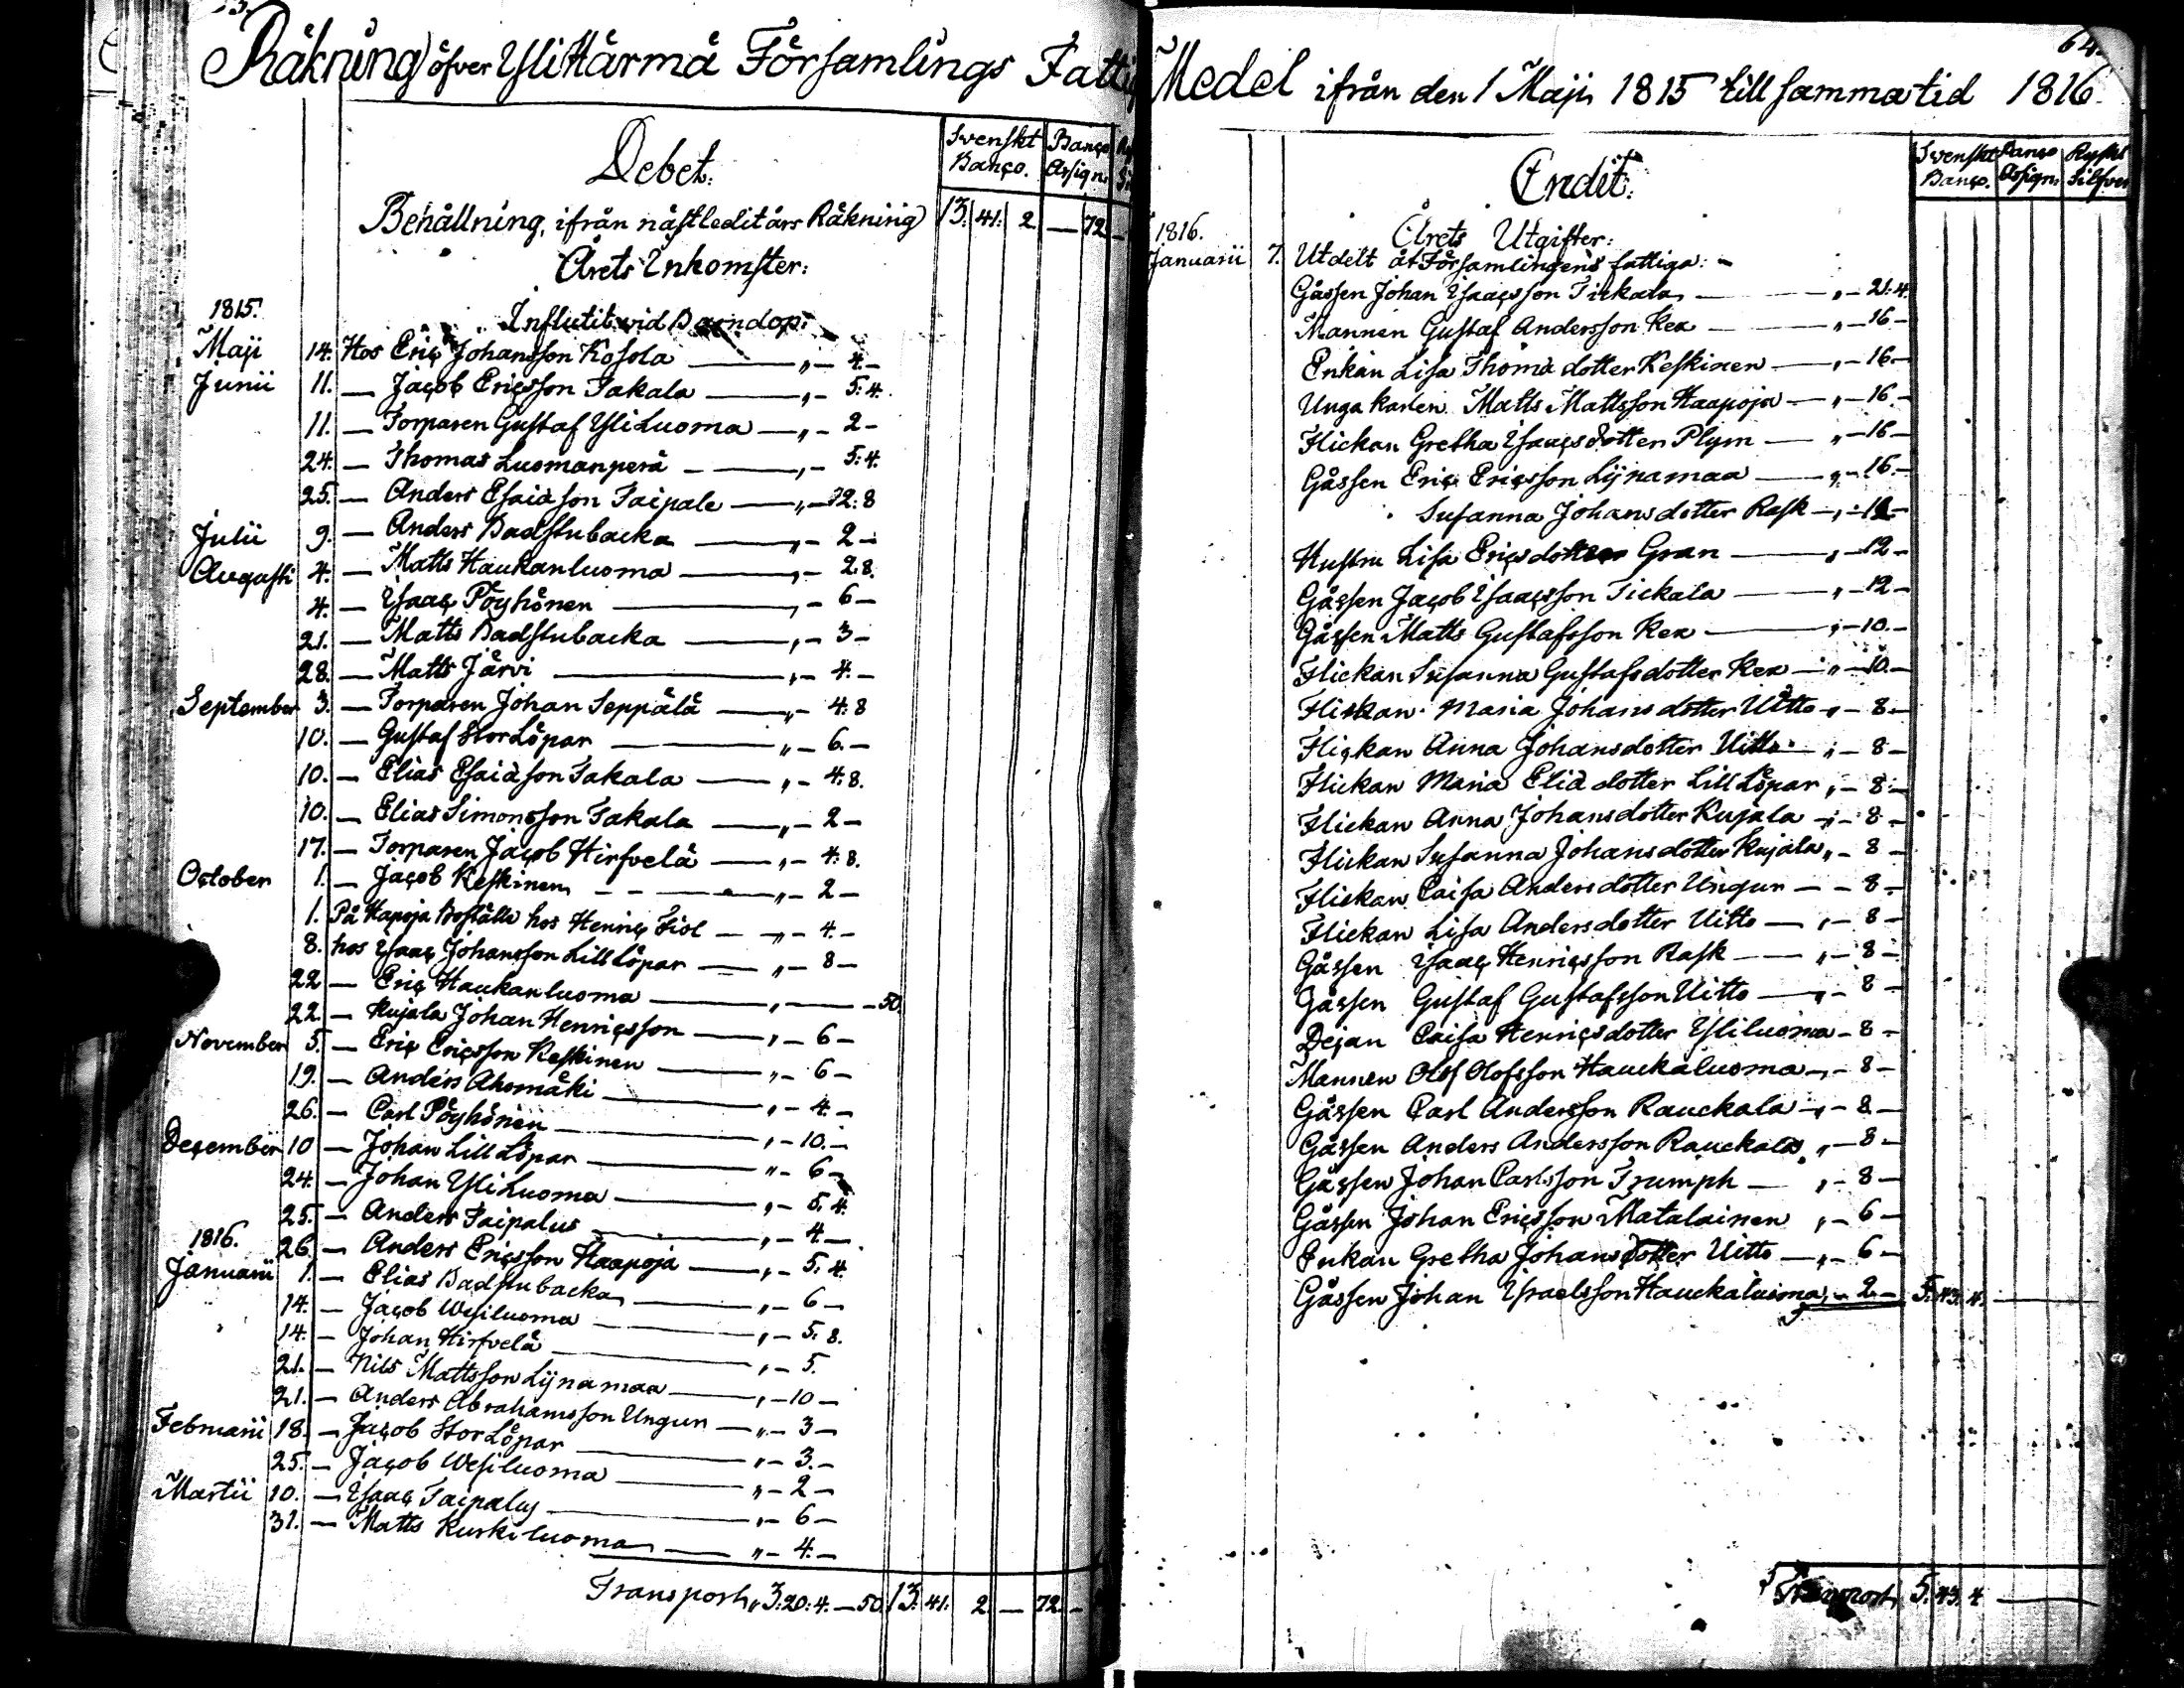 Räkning öfver Yli Härmä Församlings Fattig
Debet.
Svenskt Banço.
Banço Assign.
Behållning, ifrån nästledit års Räkning 13. 41. 2. — 72. —
Årets Inkomster:
Influtit vid Barndop:
1815.
Maji 14. Hos Eriç Johansson Kosola — „ — 4. —
Junii 11. — Jaçob Ericsson Takala — „ — 5. 4.
11. — Torparen Gustaf Yli Luoma — „ — 2 —
24. — Thomas Luomanperä — „ — 5. 4.
25. — Anders Esaiasson Taipale — „ — 12. 8
Julii 9. — Anders Badstubacka — „ — 2 —
Augusti 4. — Matts Haukanluoma — „ — 2. 8.
4. — Ysaaç Pöyhönen — „ — 6 —
21. — Matts Badstubacka — „ — 3 —
28. — Matts Järvi — „ — 4. —
September 3. — Torparen Johan Seppälä — „ — 4. 8
10. — Gustaf Stor Löpar — „ — 6. —
10. — Elias Esaiasson Takala — „ — 4. 8.
10. — Elias Simonsson Takala — „ — 2 —
17. — Torparen Jaçob Hirfvelä — „ — 4. 8.
October 1. — Jaçob Keskinen — „ — 2 —
1. På Hapoja Boställe hos Henriç Fiol — „ — 4. —
8. hos Ysaaç Johansson Lill Löpar — „ — 8 —
22 — Eriç Haukanluoma — „ — 50.
22. — Kujala Johan Henriçsson — „ — 6 —
November 5. — Eriç Eriçsson Keskinen — „ — 6 —
19. — Anders Ahomäki — „ — 4 —
26. — Carl Pöyhönen — „ — 10. —
Deçember 10 — Johan Lill Löpar — „ — 6 —
24. — Johan Yli Luoma — „ — 5. 4.
25. — Anders Taipalus — „ — 4 —
1816.
26. — Anders Eriçsson Haapoja — „ — 5. 4.
Januarii 1. — Elias Badstubacka — „ — 6 —
14. — Jaçob Wesiluoma — „ — 5. 8.
14. — Johan Hirfvelä — „ — 5.
21. — Nils Mattsson Lijnamaa — „ — 10 —
21. — Anders Abrahamsson Ungur — „ — 3 —
Februarii 18. — Jaçob Stor Löpar — „ — 3. —
25. — Jaçob Wesiluoma — „ — 2 —
Martii 10. — Ysaaç Taipalus — „ — 6 —
31. — Matts Kuskiluoma — „ — 4. —
Transport „ 3. 20. 4. — 50. 13. 41. 2. — 72. —
64.
Medel ifrån den 1 Maji 1815 till samma tid 1816.
Credit.
Svenskt Banço.
Banço Assign.
Ryskt Silfver
1816.
Årets Utgifter:
Januarii 7. Utdelt åt Församlingens fattiga: —
Gåssen Johan Ysaaçsson Tickala — „ — 21. 4.
Mannen Gustaf Andersson Kex — „ — 16 —
Enkan Lisa Thomä dotter Keskinen — „ — 16 —
Unga karlen Matts Mattsson Haapoja — „ — 16 —
Flickan Gretha Ysaaçs dotter Plym — „ — 16 —
Gåssen Eriç Eriçsson Lijnamaa — „ — 16 —
Susanna Johans dotter Rask — „ — 12 —
Hustru Lisa Eriçsdotter Gran — „ — 12 —
Gåssen Jaçob Ysaaçsson Tickala — „ — 12 —
Gåssen Matts Gustafsson Kex — „ — 10. —
Flickan Susanna Gustafsdotter Kex — „ — 10. —
Flickan Maria Johansdotter Uitto „ — 8 —
Fliçkan Anna Johansdotter Uitto — „ — 8 —
Flickan Maria Eliä dotter Lill Löpar „ — 8 —
Flickan Anna Johansdotter Kujala — „ — 8 —
Flickan Susanna Johansdotter Kujala „ — 8 —
Flickan Caisa Andersdotter Ungur — — 8 —
Flickan Lisa Andersdotter Uitto — „ — 8 —
Gåssen Ysaaç Henriçsson Rask — „ — 8 —
Gåssen Gustaf Gustafsson Uitto — „ — 8 —
Dejan Caisa Henriçsdotter Yliluoma — 8 —
Mannen Olof Olofsson Hauckaluoma — „ — 8 —
Gåssen Carl Andersson Rauckala — „ — 8 —
Gåssen Anders Andersson Rauckala „ — 8 —
Gåssen Johan Carlsson Trumph — „ — 8 —
Gåssen Johan Eriçsson Matalainen „ — 6 —
Enkan Gretha Johansdotter Uitto — „ — 6 —
Gåssen Johan Ysraelsson Hauckaluoma „ — 2. — 5. 43. 4.
Transport 5. 43. 4